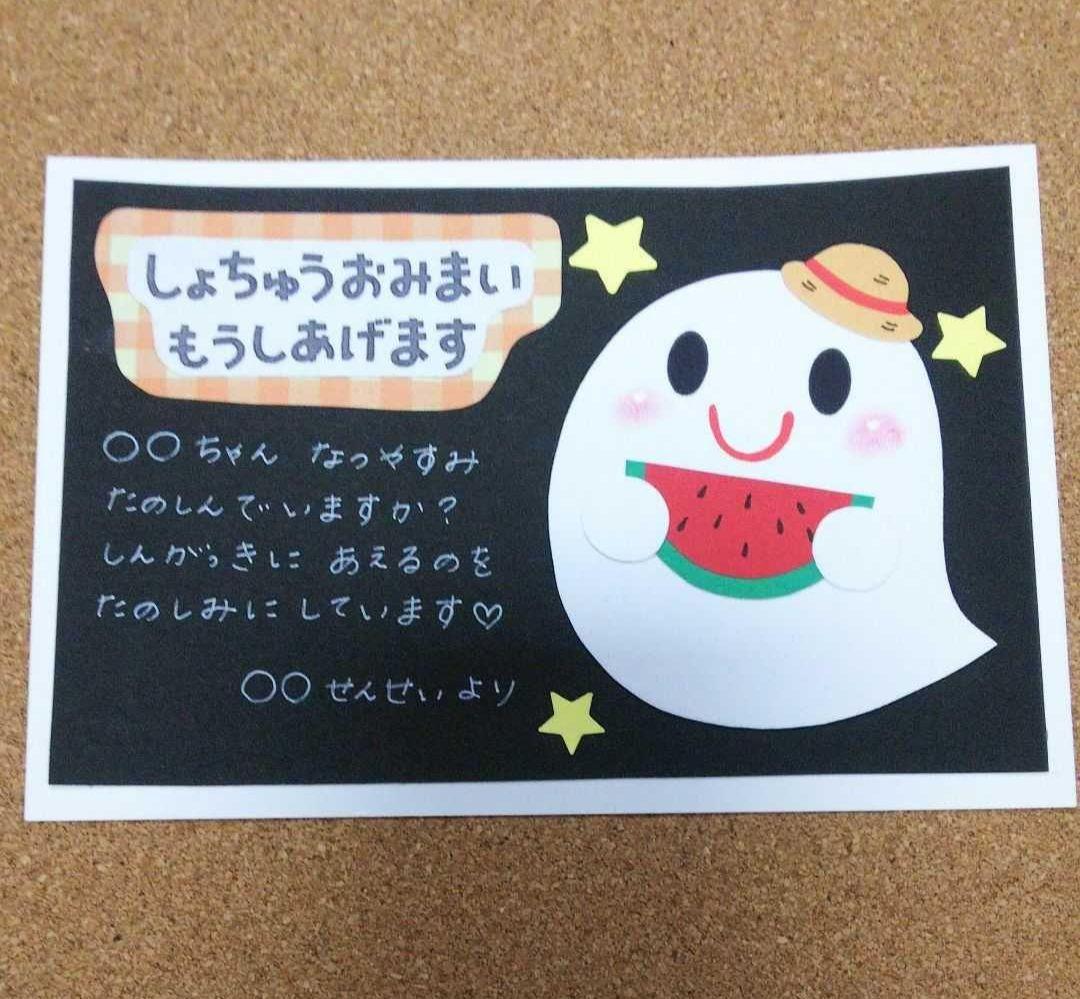 しょちゅうおみまい
もうしあげます
○○ちゃん なつやすみ
たのしんでいますか?
しんがっきに あえるのを
たのしみに しています♡
○○ せんせい より